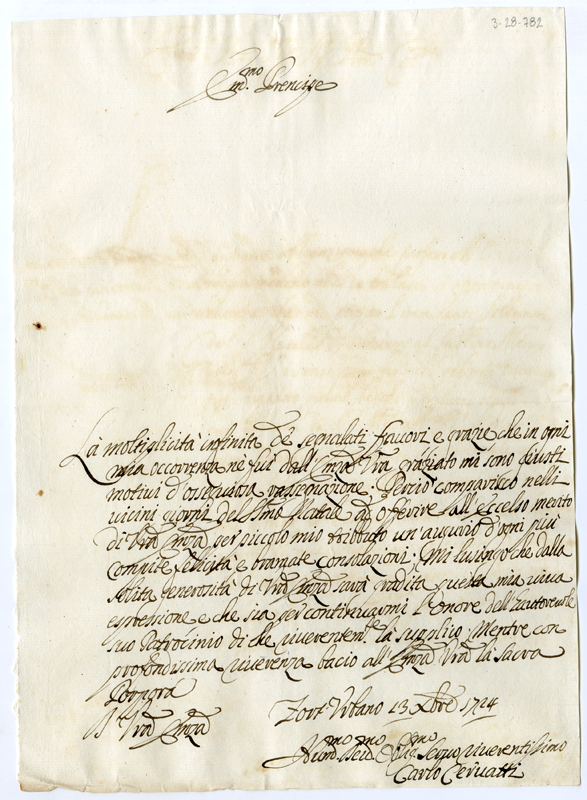 3-28-782
Em.mo Prencipe
La moltiplicità infinita de segnalati favori e grazie che in ogni
mia occorrenza ne fui dall' Emza Vra graziato mi sono giusti
motivi d'ossequiosa rassegnazione. Perciò comparisco nelli
vicini giorni del Smo Natale ad offerire all' eccelso merito
di Vra Emza per piccolo mio tributo un' augurio d'ogni più
compite felicità e bramate consolazioni. Mi lusingo che dalla
solita generosità di Vra Emza sarà gradita questa mia viva
espressione e che sia per continuarmi l'onore dell'
suo Patrocinio di che riverentemte la supplico, Mentre con
profondissima riverenza bacio all' Emza Vra la sacra
Porpora
D' Vra Emza
Fort' Urbano 13 Xbre 1724
Hum.mo Devo.mo Obligmo Servo riverentissimo
Carlo Cervatti